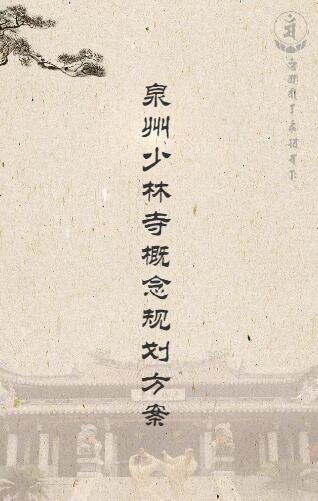 泉州少林寺概念规划方案